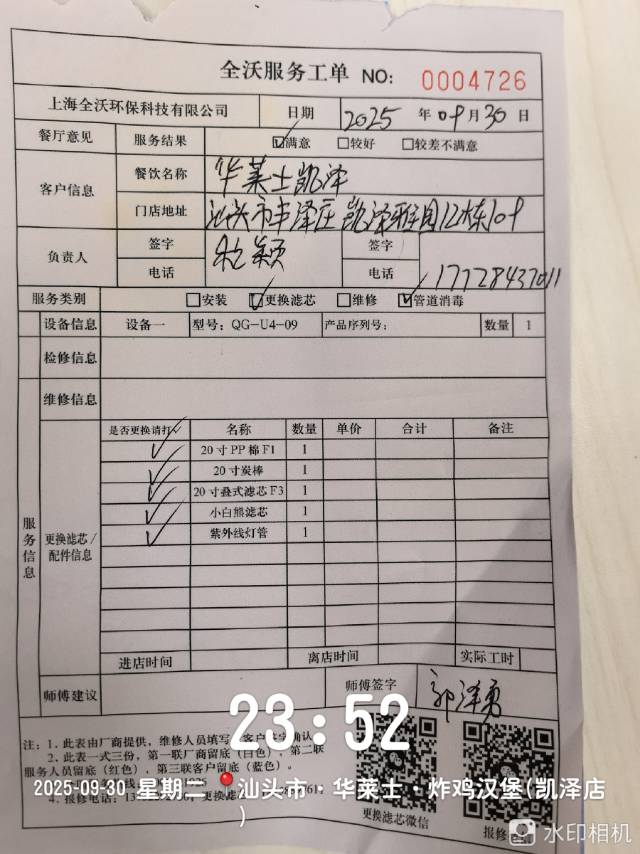 全沃服务工单 NO: 0004726
上海全沃环保科技有限公司 日期 2025 年 09 月 30 日
餐厅意见 服务结果 ☑满意 ☐较好 ☐较差不满意
客户信息 餐饮名称 华莱士凯泽
门店地址 汕头市丰泽庄凯泽雅园12栋109
负责人 签字 杜颖 签字
电话 电话 17728437011
服务类别 ☐安装 ☑更换滤芯 ☐维修 ☑管道消毒
设备信息 设备一 型号: QG-U4-09 产品序列号: 数量 1
检修信息
维修信息
服务信息
更换滤芯/配件信息
是否更换请打✓ 名称 数量 单价 合计 备注
✓ 20寸PP棉F1 1
✓ 20寸炭棒 1
✓ 20寸叠式滤芯F3 1
✓ 小白熊滤芯 1
✓ 紫外线灯管 1
进店时间 离店时间 实际工时
师傅建议 师傅签字 郭泽勇
23:52
注: 1. 此表由厂商提供, 维修人员填写, 客户签字确认
2. 此表一式三份, 第一联厂商留底(白色), 第二联
服务人员留底(红色), 第三联客户留底(蓝色)。
2025-09-30 星期二 汕头市·华莱士·炸鸡汉堡(凯泽店
)
4. 报修电话: 更换滤
更换滤芯微信
报修
水印相机